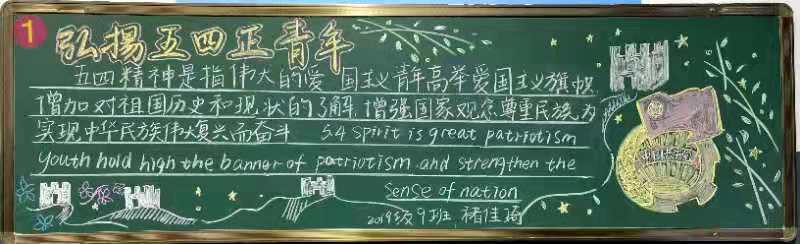 1
弘扬五四正青年
五四精神是指伟大的爱国主义青年高举爱国主义旗帜
增加对祖国历史和现状的了解,增强国家观念尊重民族,为
实现中华民族伟大复兴而奋斗 5.4 Spirit is great patriotism
youth hold high the banner of patriotism and strengthen the
Sense of nation
2019级9班 褚佳琦